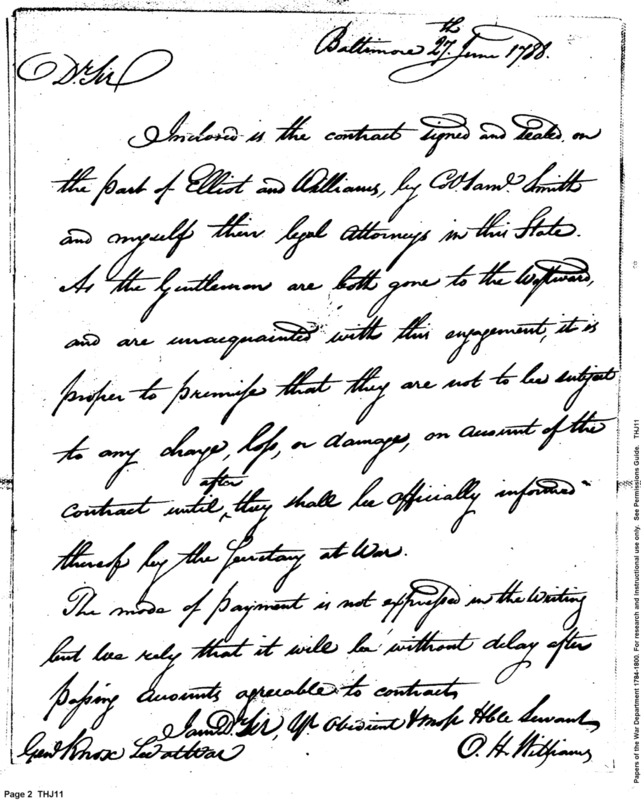 Baltimore 27.th June 1788.
Dr. Sir
Inclosed is the contract signed and sealed, on
the part of Elliot and Williams, by Col. Saml. Smith
and myself their legal Attorneys in this State.
As the Gentlemen are both gone to the Westward,
and are unacquainted with this engagement, it is
proper to premise that they are not to be subject
to any charge, loss, or damage, on account of the
contract until after they shall be officially informed
thereof by the Secretary at War.
The mode of payment is not expressed in the Writing
but we rely that it will be without delay after
passing accounts agreeable to contract.
I am Dr. Sir, Yr. Obedient & most Hble Servant
Genl. Knox Sec at War
O. H. Williams
Page 2 THJ11
Papers of the War Department 1784-1800. For research and instructional use only. See Permissions Guide. THJ11